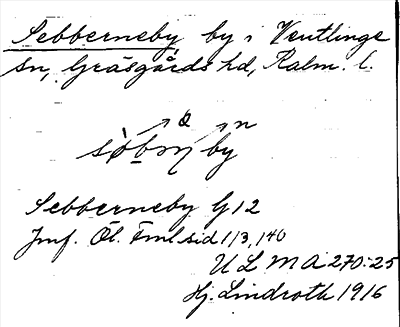 Sebberneby by i Ventlinge
sn, Gräsgårds hd, Kalm. l.
Sebberneby G12
Jmf. Öl. Fml sid 113, 140
ULMA 270:25
Hj. Lindroth 1916